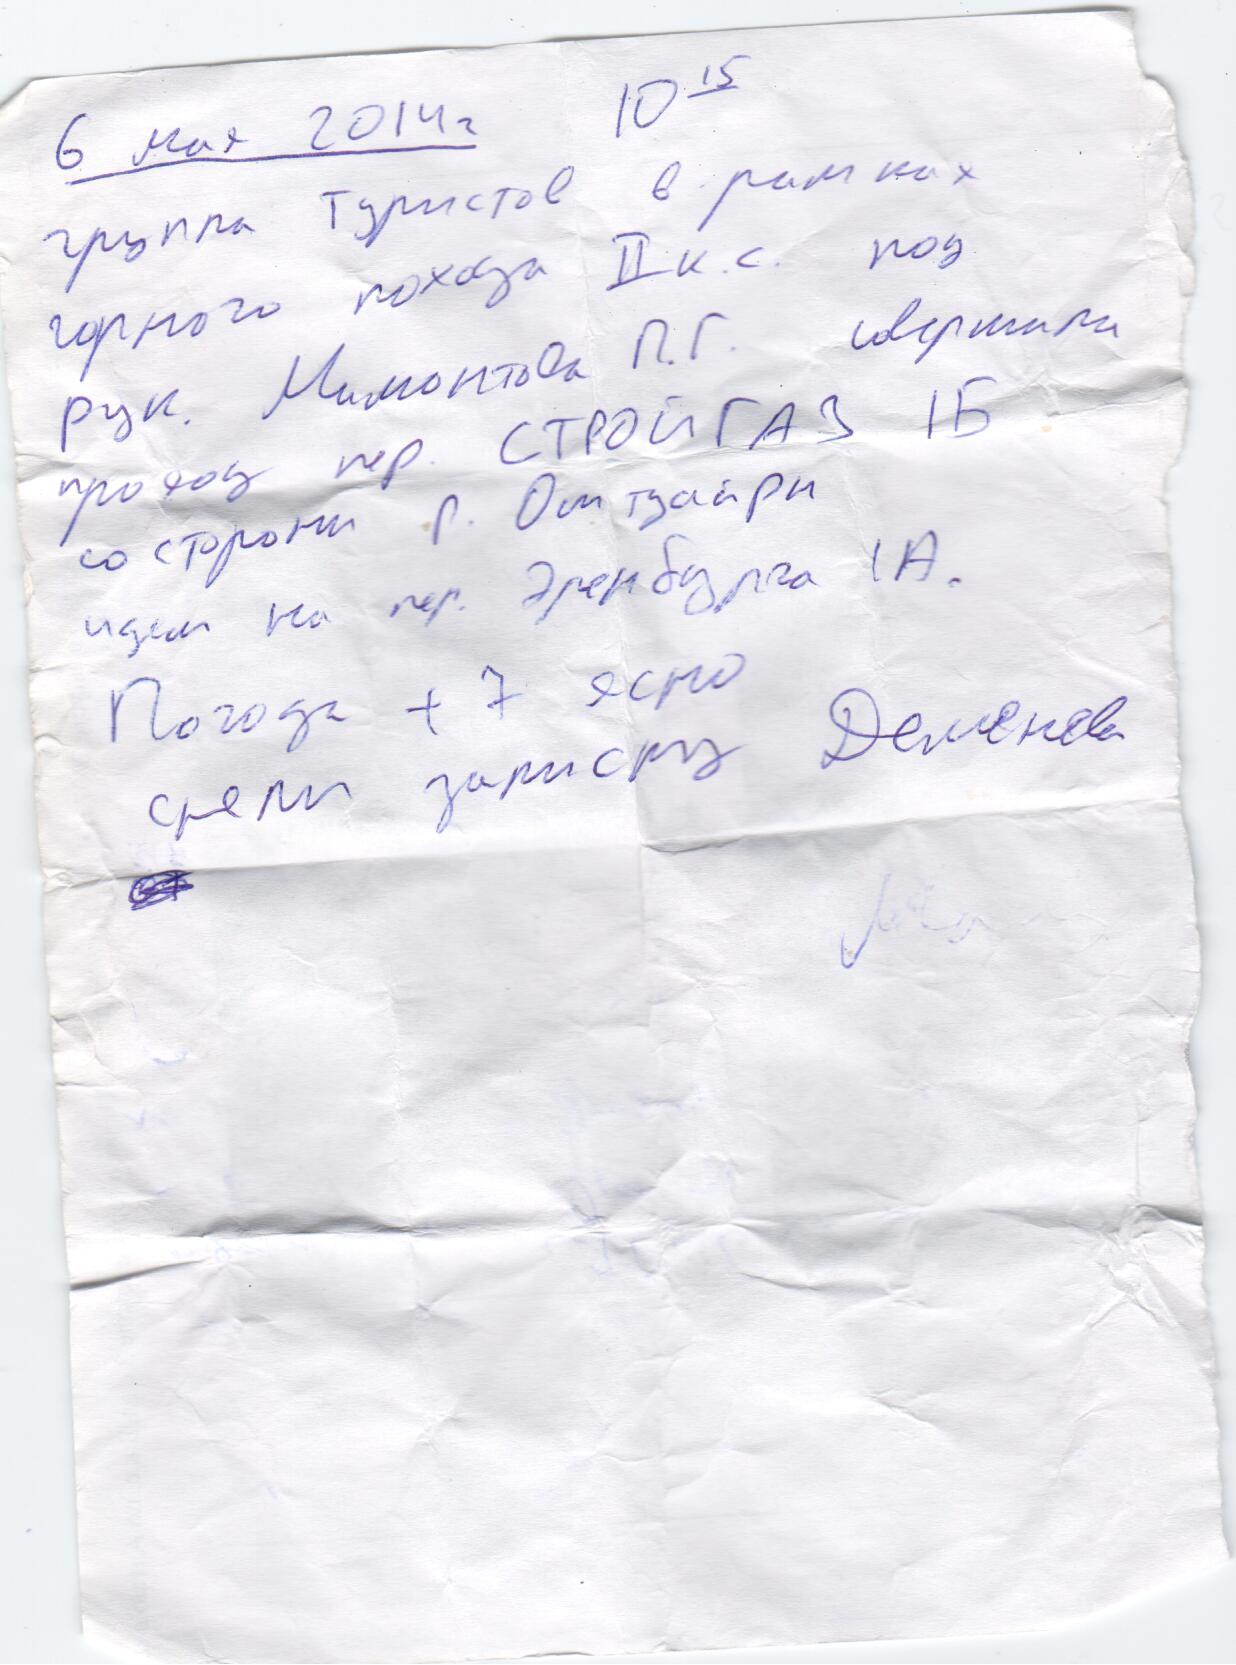 6 мая 2014г 10 15
группа туристов в рамках
горного похода II к.с. под
рук. Мимонтова П.Г. совершила
проход пер. СТРОЙГАЗ 1Б
со стороны р.
идем на пер. Эренбурга 1А.
Погода + 7 ясно
сняли записку Деменева